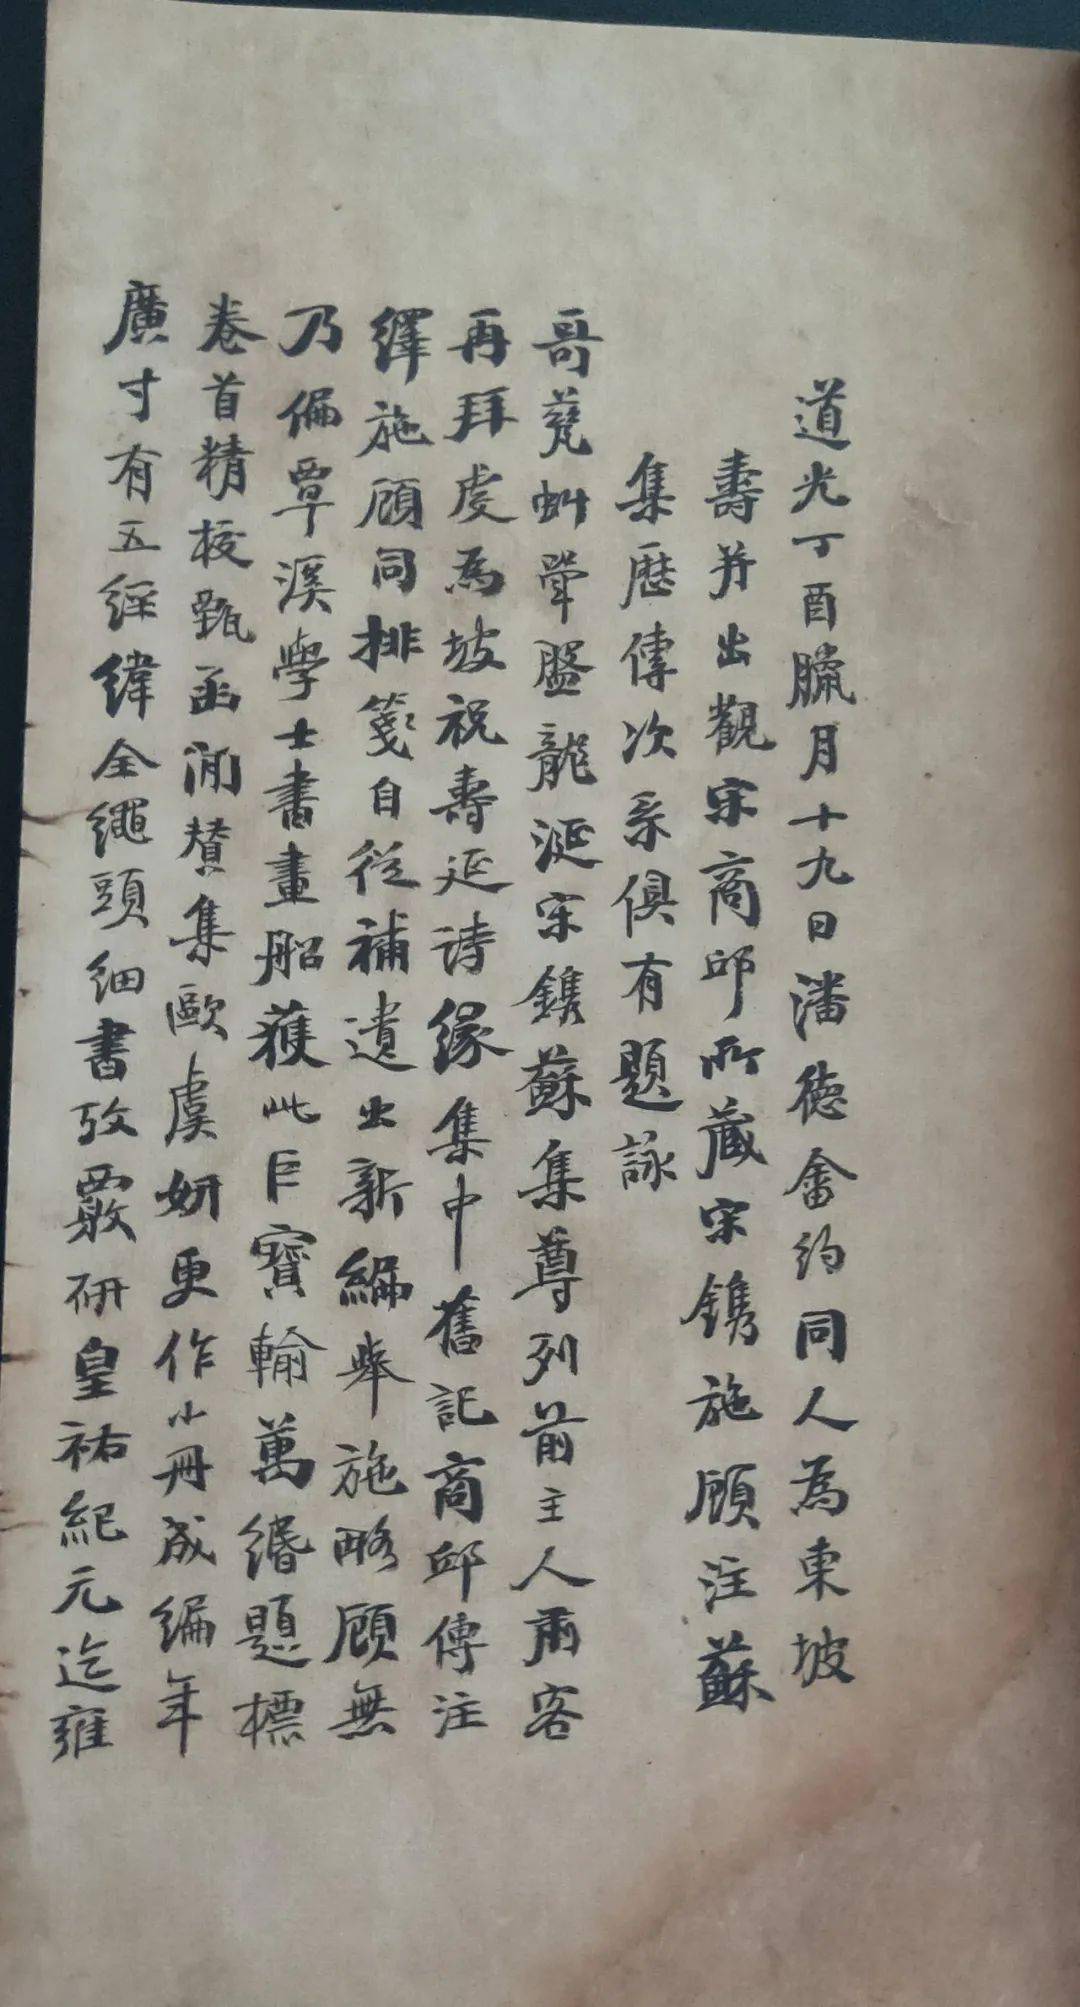 道光丁酉臘月十九日潘德畬約同人為東坡
壽并出觀宋商邱所藏宋鐫施顧注蘇
集歷傳次系俱有題詠
哥甆蚪斝盤龍涎宋鐫蘇集尊列前主人肅客
再拜虔為坡祝壽延诗緣集中舊記商邱傳注
繹施顧同排箋自從補遺出新編舉施略顧無
乃偏覃溪學士書畫船獲此巨寶輸萬緡題標
卷首精校甄函閒贊集歐虞妍更作小冊成編年
廣寸有五經緯全繩頭細書攷覈研皇祐紀元迄雍